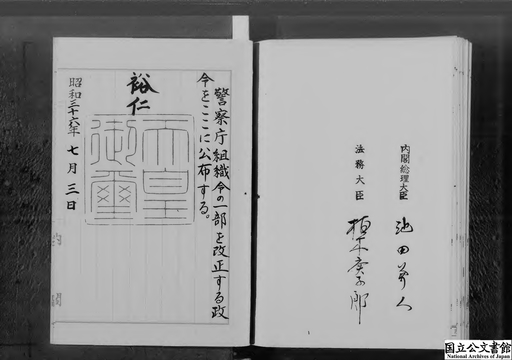 警察庁組織令の一部を改正する政
令をここに公布する。
裕仁
天皇
御璽
昭和三十六年 七月三日
内閣
内閣総理大臣 池田勇人
法務大臣 植木庚子郎
国立公文書館
National Archives of Japan